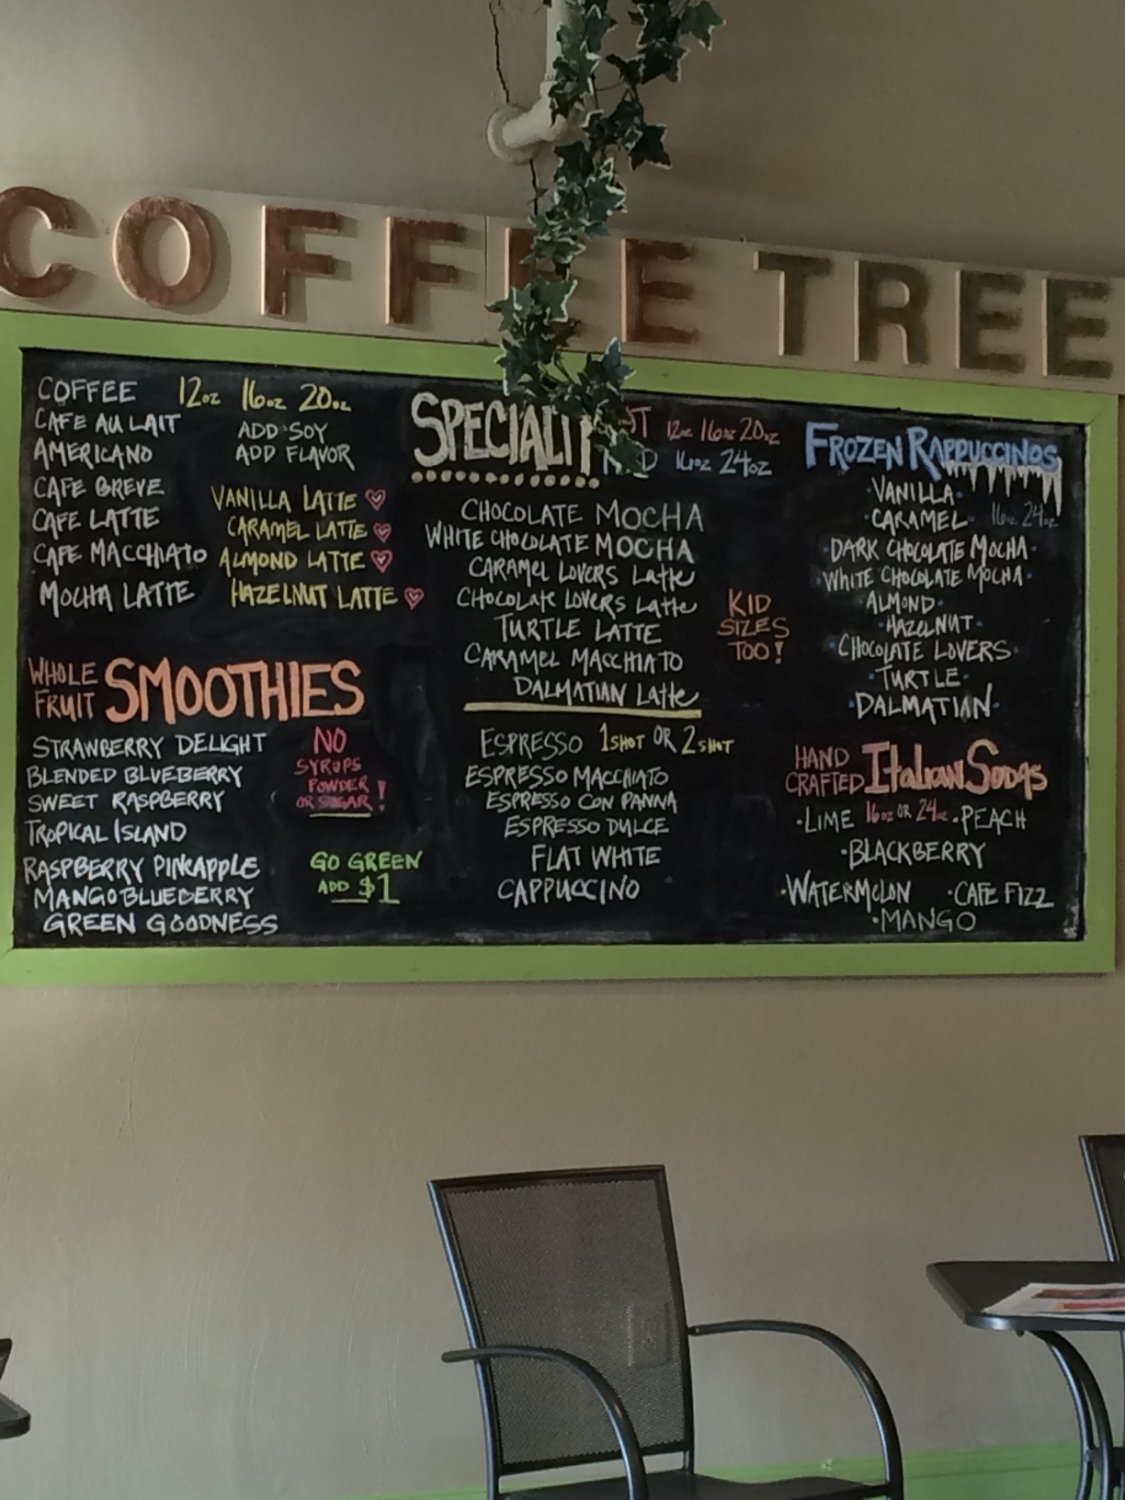 COFFEE TREE
COFFEE 12oz 16oz 20oz
CAFE AU LAIT
AMERICANO
CAFE BREVE
CAFE LATTE
CAFE MACCHIATO
MOCHA LATTE
ADD SOY
ADD FLAVOR
VANILLA LATTE
CARAMEL LATTE
ALMOND LATTE
HAZELNUT LATTE
WHOLE
FRUIT
SMOOTHIES
STRAWBERRY DELIGHT
BLENDED BLUEBERRY
SWEET RASPBERRY
TROPICAL ISLAND
RASPBERRY PINEAPPLE
MANGO BLUEBERRY
GREEN GOODNESS
NO
SYRUPS
POWDER
OR SUGAR!
GO GREEN
ADD $1
12oz 16oz 20oz
16oz 24oz
CHOCOLATE MOCHA
WHITE CHOCOLATE MOCHA
CARAMEL LOVERS LATTE
CHOCOLATE LOVERS LATTE
TURTLE LATTE
CARAMEL MACCHIATO
DALMATIAN LATTE
KID
SIZES
TOO!
ESPRESSO 1SHOT OR 2SHOT
ESPRESSO MACCHIATO
ESPRESSO CON PANNA
ESPRESSO DULCE
FLAT WHITE
CAPPUCCINO
FROZEN RAPPUCCINOS
VANILLA
CARAMEL 16oz 24oz
DARK CHOCOLATE MOCHA
WHITE CHOCOLATE MOCHA
ALMOND
HAZELNUT
CHOCOLATE LOVERS
TURTLE
DALMATIAN
HAND
CRAFTED
ITALIAN SODAS
LIME 16oz OR 24oz PEACH
BLACKBERRY
WATERMELON CAFE FIZZ
MANGO